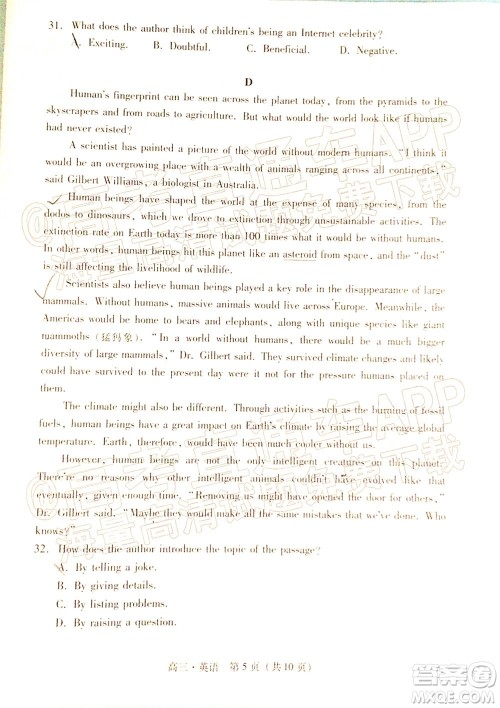 31. What does the author think of children's being an Internet celebrity?
A. Exciting. B. Doubtful. C. Beneficial. D. Negative.
D
Human's fingerprint can be seen across the planet today, from the pyramids to the
skyscrapers and from roads to agriculture. But what would the world look like if humans
had never existed?
A scientist has painted a picture of the world without modern humans. "I think it
would be an overgrowing place with a wealth of animals ranging across all continents,"
said Gilbert Williams, a biologist in Australia.
Human beings have shaped the world at the expense of many species, from the
dodos to dinosaurs, which we drove to extinction through unsustainable activities. The
extinction rate on Earth today is more than 100 times what it would be without humans.
In other words, human beings hit this planet like an asteroid from space, and the "dust"
is still affecting the livelihood of wildlife.
Scientists also believe human beings played a key role in the disappearance of large
mammals. Without humans, massive animals would live across Europe. Meanwhile, the
Americas would be home to bears and elephants, along with unique species like giant
mammoths (猛犸象). "If there were no humans, there would be a much bigger
diversity of large mammals," Dr. Gilbert said. They survived climate changes and likely
could have survived to the present day were it not for the pressure humans placed on
them.
The climate might also be different. Through activities such as the burning of fossil
fuels, human beings have a great impact on Earth's climate by raising the average global
temperature. Earth, therefore, would be much cooler without us.
However, human beings are not the only intelligent creatures on this planet.
There're no reasons why other intelligent animals couldn't have evolved like us,
given enough time. "Removing us might have opened the door for others,"
Dr. Gilbert said. "Maybe they would make all the same mistakes that we've done. Who
knows?"
32. How does the author introduce the topic of the passage?
A. By telling a joke.
B. By giving details.
C. By listing problems.
D. By raising a question.
高三·英语 第5页(共10页)